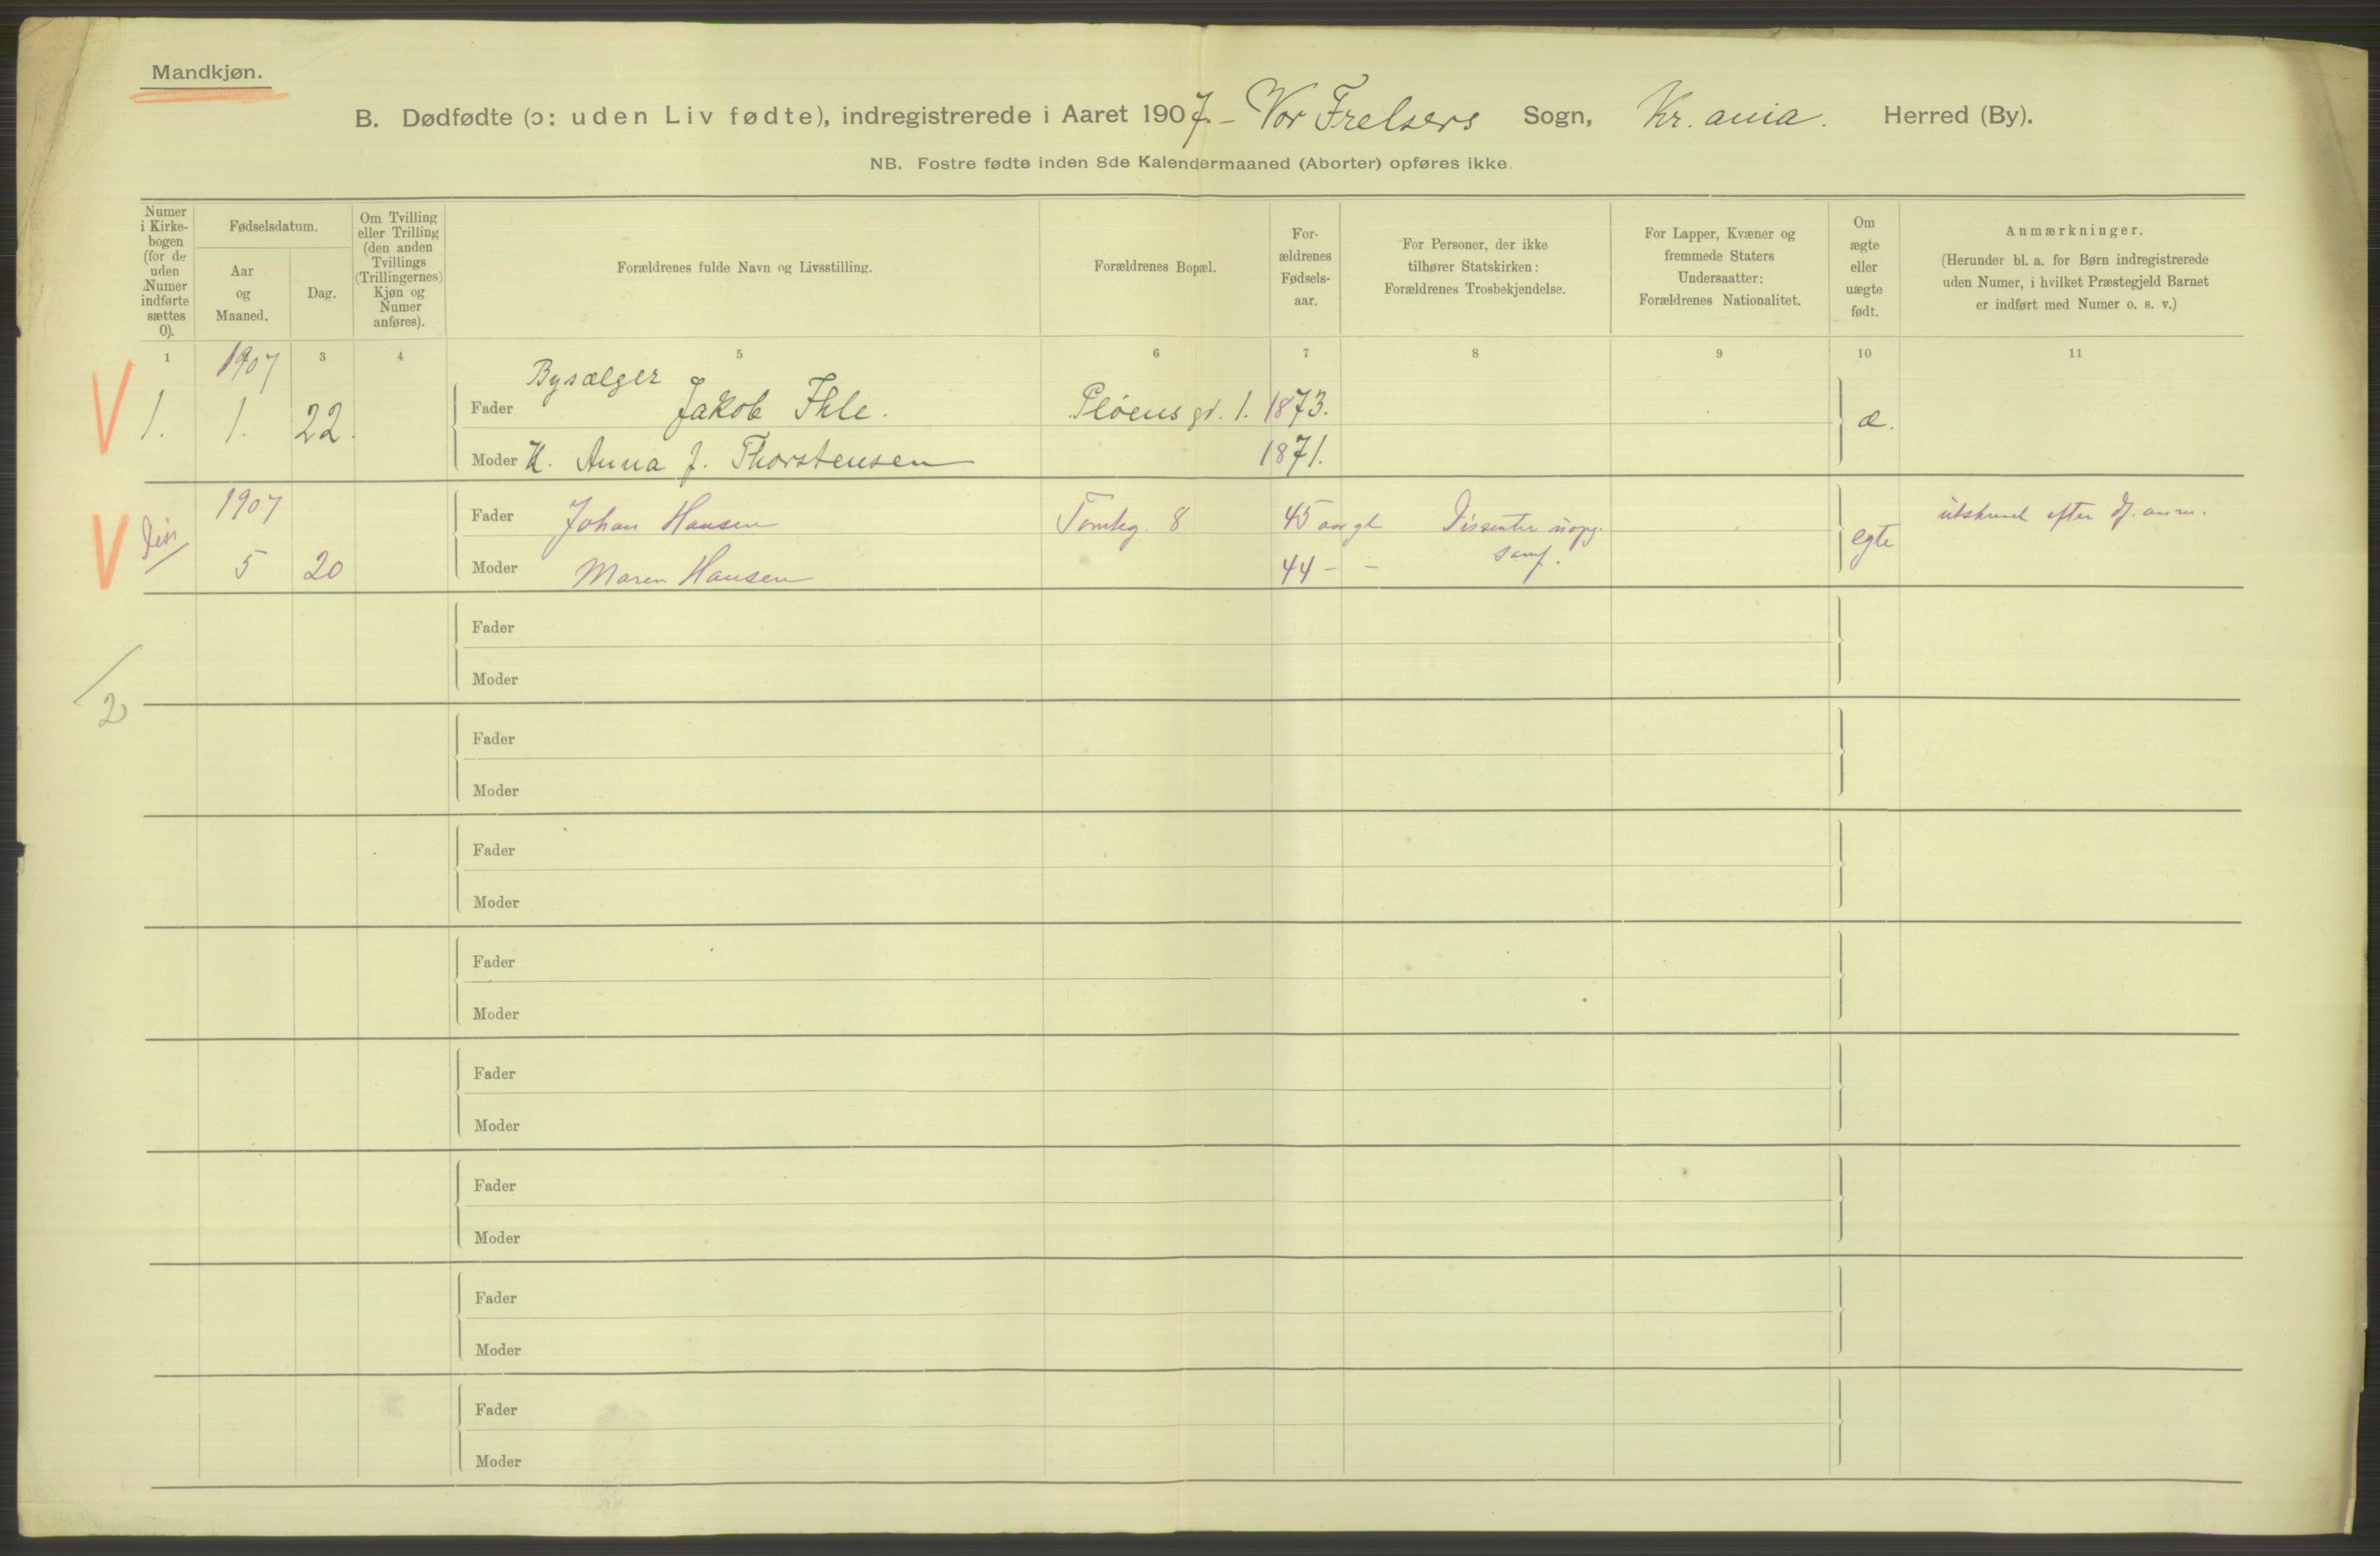 Mandkjøn.
B. Dødfødte (ɔ: uden Liv fødte), indregistrerede i Aaret 1907. – Vor Frelsers Sogn, Kr. ania. Herred (By).
NB. Fostre fødte inden 8de Kalendermaaned (Aborter) opføres ikke.
Numer
i Kirke-
bogen
(for de
uden
Numer
indførte
sættes
0).
Fødselsdatum.
Aar
og
Maaned.
Dag.
Om Tvilling
eller Trilling
(den anden
Tvillings
(Trillingernes)
Kjøn og
Numer
anføres).
Forældrenes fulde Navn og Livsstilling.
Forældrenes Bopæl.
For-
ældrenes
Fødsels-
aar.
For Personer, der ikke
tilhører Statskirken:
Forældrenes Trosbekjendelse.
For Lapper, Kvæner og
fremmede Staters
Undersaatter:
Forældrenes Nationalitet.
Om
ægte
eller
uægte
født.
Anmærkninger.
(Herunder bl. a. for Børn indregistrerede
uden Numer, i hvilket Præstegjeld Barnet
er indført med Numer o. s. v.)
1 1907 3 4 5 6 7 8 9 10 11
Bysælger
V 1. 1. 22. Fader Jakob Ihle. Pløens gd. 1. 1873. æ.
Moder H. Anna J. Thorstensen 1871.
1907 Fader Johan Hansen 8 45 aar gl Dissenter
V Diss 5 20 Moder Maren Hansen 44 – – samf. egte efter
Fader
Moder
2
Fader
Moder
Fader
Moder
Fader
Moder
Fader
Moder
Fader
Moder
Fader
Moder
Fader
Moder